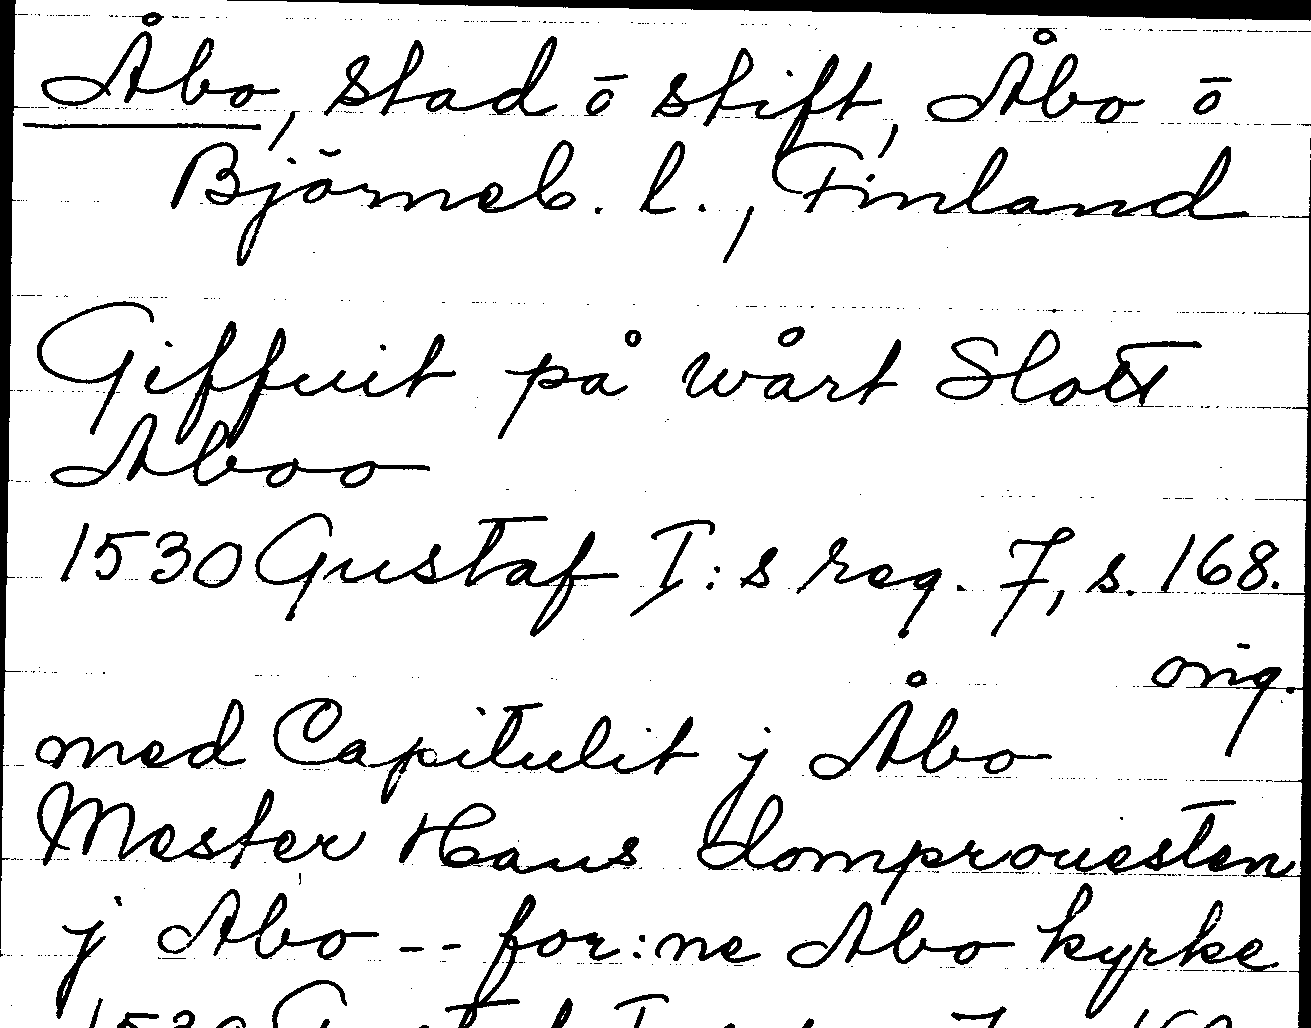 Åbo, stad ō stift, Åbo ō
Björneb. l., Finland
Giffuit på wårt Slott
Aboo
1530 Gustaf I:s reg. 7, s. 168.
orig.
med Capitulit j Åbo
Mester Hans domprouesten
j Abo -- for:ne Abo kyrke
1530 Gustaf I